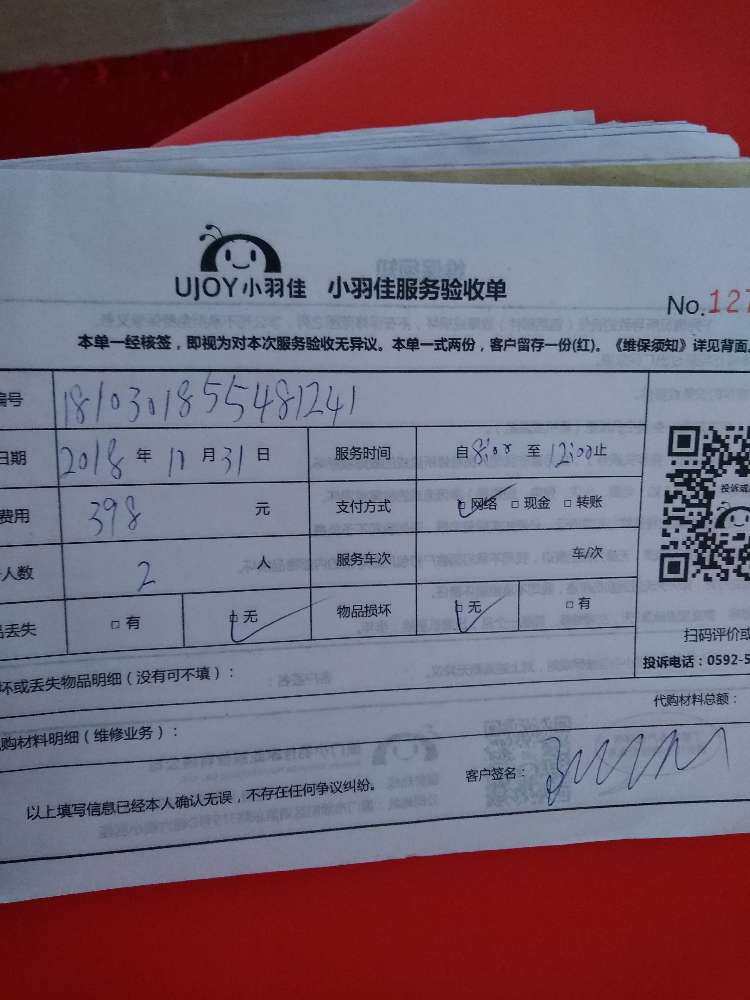 UJOY小羽佳 小羽佳服务验收单
No.127
本单一经核签，即视为对本次服务验收无异议。本单一式两份，客户留存一份(红)。《维保须知》详见背面。
编号 18103018555481241
日期 2018 年 10 月 31 日 服务时间 自 8:00 至 12:00 止
费用 398 元 支付方式 □ 网络 □ 现金 □ 转账
人数 2 人 服务车次 车/次
品丢失 □ 有 □ 无 物品损坏 □ 无 □ 有
投诉或
扫码评价或
投诉电话：0592-5
坏或丢失物品明细（没有可不填）：
代购材料总额：
购材料明细（维修业务）：
以上填写信息已经本人确认无误，不存在任何争议纠纷。 客户签名：